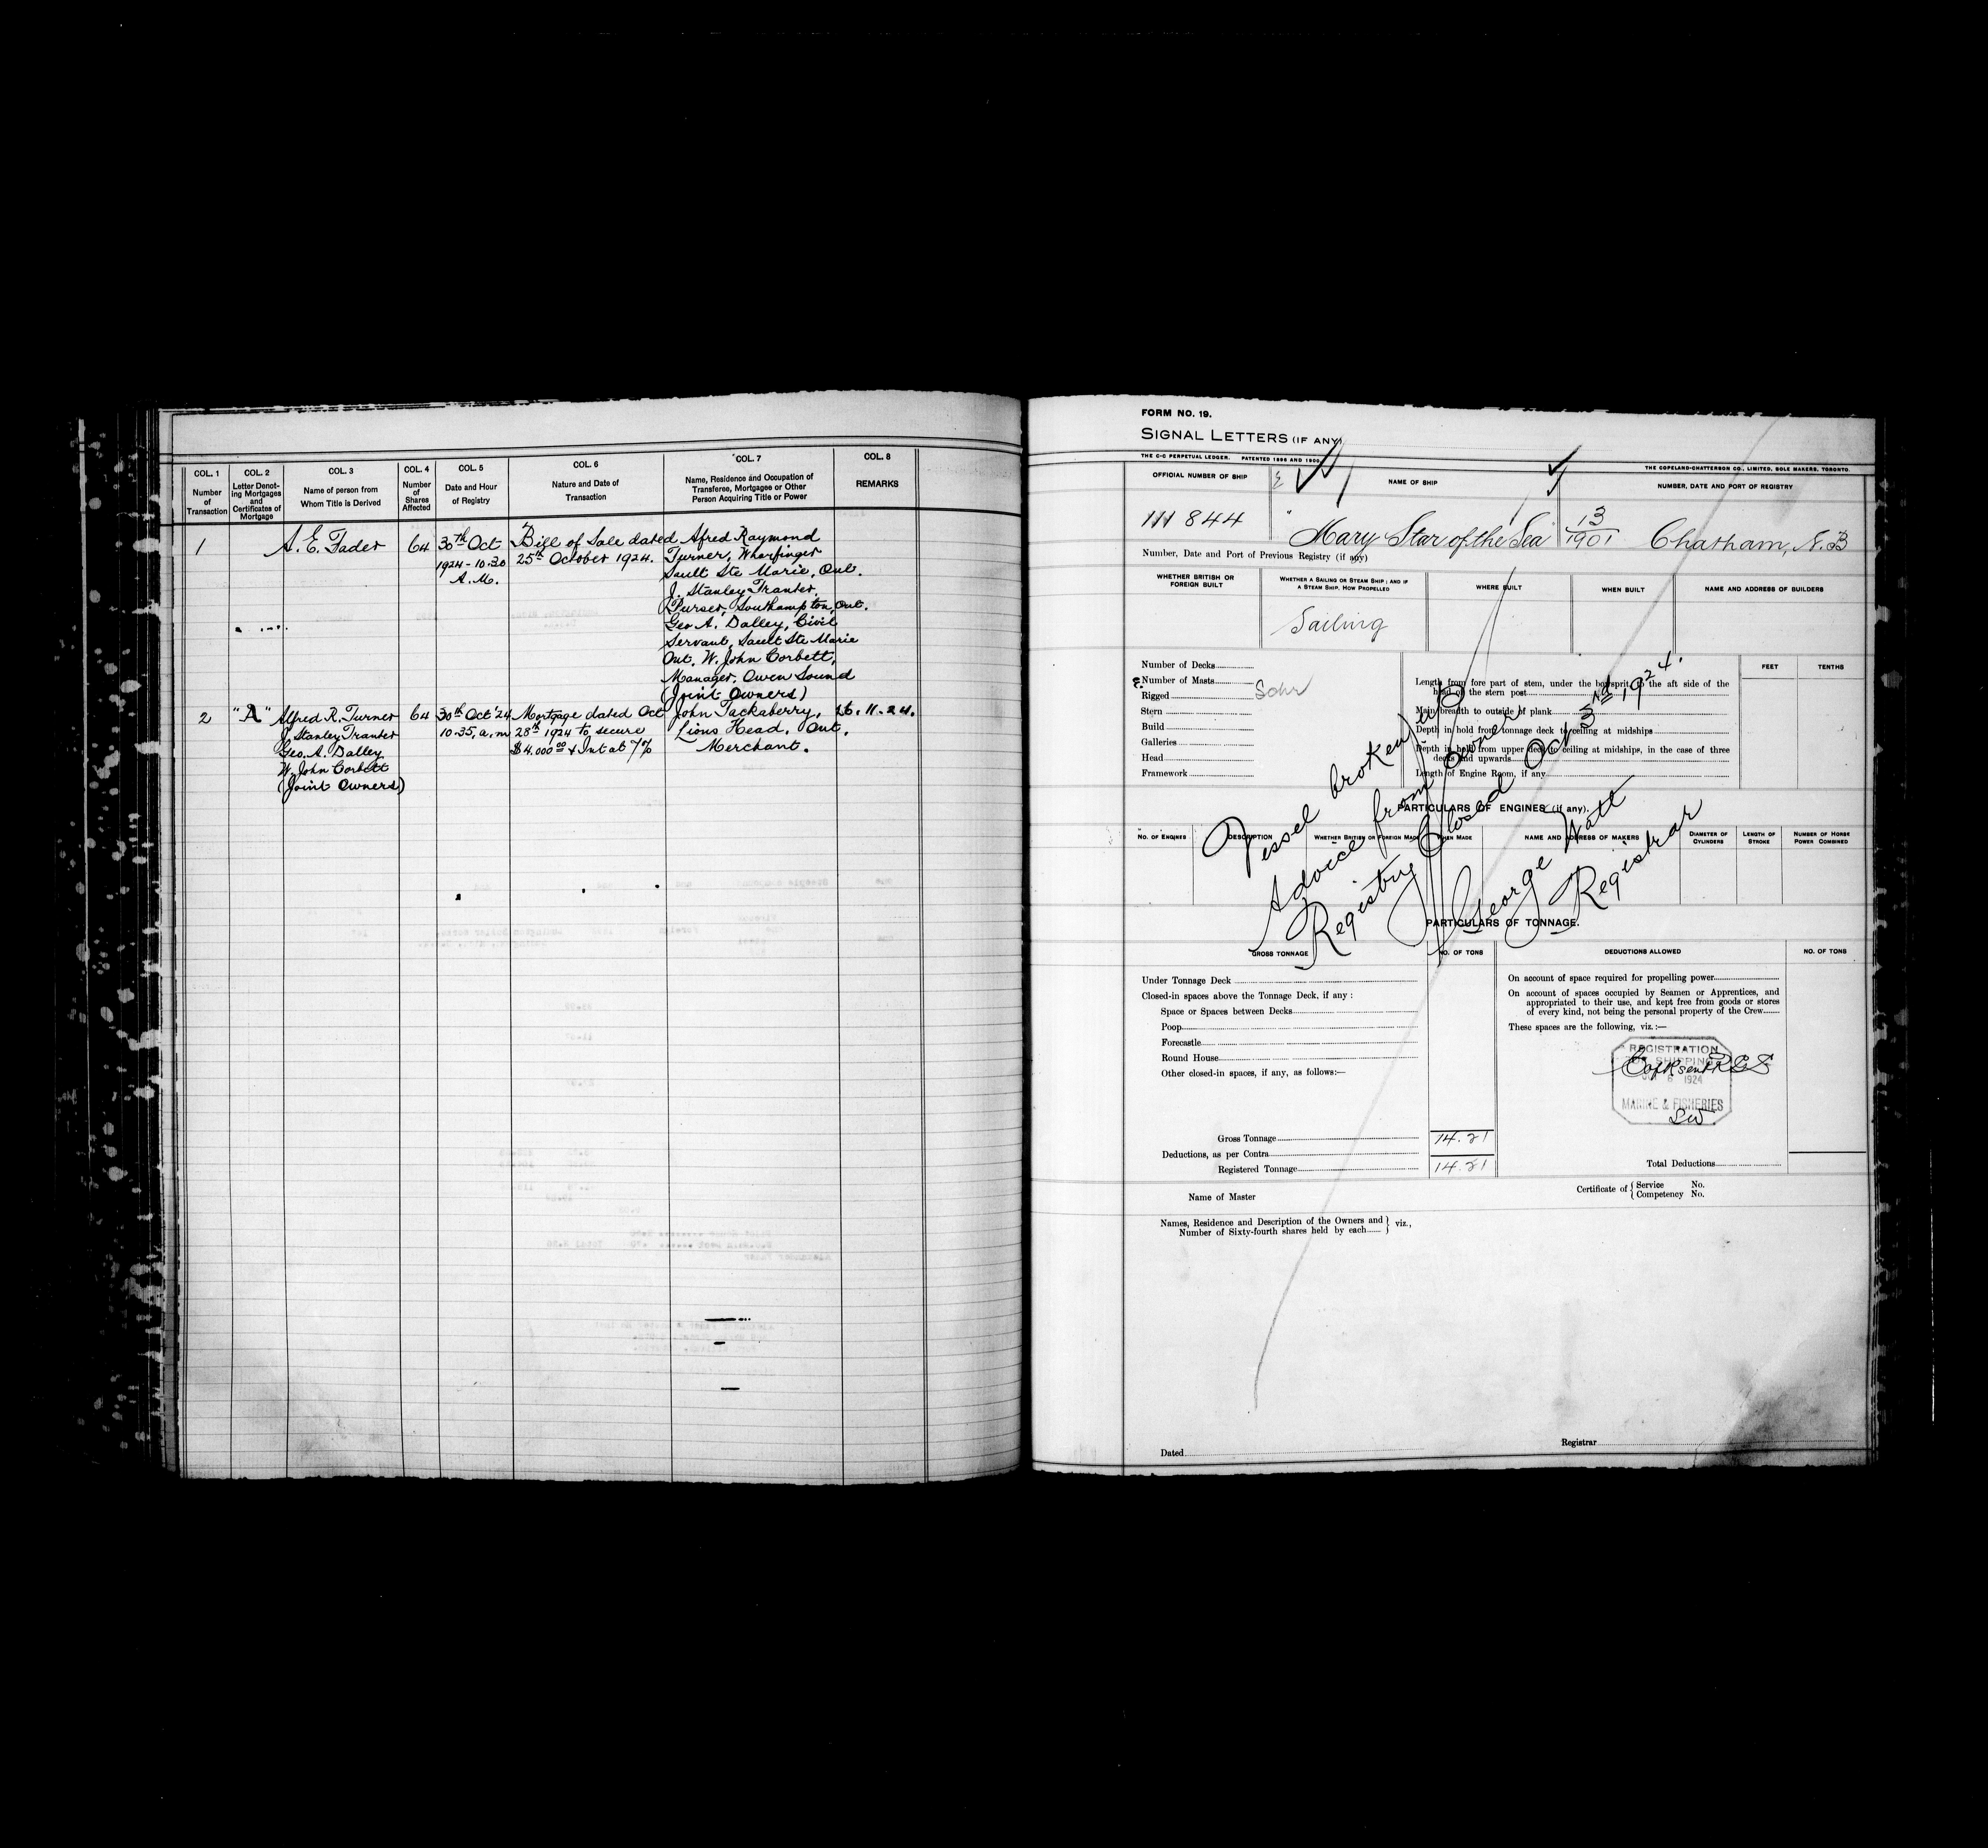 COL. 1
Number
of
Transaction
COL. 2
Letter Denot-
ing Mortgages
and
Certificates of
Mortgage
COL. 3
Name of person from
Whom Title is Derived
COL. 4
Number
of
Shares
Affected
COL. 5
Date and Hour
of Registry
COL. 6
Nature and Date of
Transaction
COL. 7
Name, Residence and Occupation of
Transferee, Mortgagee or Other
Person Acquiring Title or Power
COL. 8
REMARKS
1
A. E. Fader
64
30th Oct
1924 - 10.30
A.M.
Bill of Sale dated
25th October 1924.
Alfred Raymond
Turner, Wharfinger
Sault Ste Marie, Ont.
J. Stanley Tranter,
Purser, Southampton, Ont.
Geo A. Dalley, Civil
Servant, Sault Ste Marie
Ont. W. John Corbett,
Manager, Owen Sound
(Joint Owners)
2
"A"
Alfred R. Turner
J. Stanley Tranter
Geo. A. Dalley
W. John Corbett
(Joint Owners)
64
30th Oct '24
10.35, a.m
Mortgage dated Oct
28th 1924 to secure
$4.000 00 & Int at 7%
John Tackaberry,
Lions Head, Ont.
Merchant.
26.11.24.
FORM NO. 19.
SIGNAL LETTERS (IF ANY)
THE C-C PERPETUAL LEDGER. PATENTED 1896 AND 1900
THE COPELAND-CHATTERSON CO., LIMITED, SOLE MAKERS, TORONTO.
OFFICIAL NUMBER OF SHIP
NAME OF SHIP
NUMBER, DATE AND PORT OF REGISTRY
111844
"Mary Star of the Sea"
13
1901
Chatham, N.B
Number, Date and Port of Previous Registry (if any)
WHETHER BRITISH OR
FOREIGN BUILT
WHETHER A SAILING OR STEAM SHIP; AND IF
A STEAM SHIP, HOW PROPELLED
WHERE BUILT
WHEN BUILT
NAME AND ADDRESS OF BUILDERS
Sailing
Number of Decks
Number of Masts
Rigged
Schr
Stern
Build
Galleries
Head
Framework
Length from fore part of stem, under the bowsprit, to the aft side of the
head of the stern post
Main breadth to outside of plank
Depth in hold from tonnage deck to ceiling at midships
Depth in hold from upper deck to ceiling at midships, in the case of three
decks and upwards
Length of Engine Room, if any
FEET
TENTHS
Vessel broken up
Advice from owner
Registry Closed Oct 3rd 1924.
George Watt
Registrar
PARTICULARS OF ENGINES (if any).
NO. OF ENGINES
DESCRIPTION
WHETHER BRITISH OR FOREIGN MADE
WHEN MADE
NAME AND ADDRESS OF MAKERS
DIAMETER OF
CYLINDERS
LENGTH OF
STROKE
NUMBER OF HORSE
POWER COMBINED
PARTICULARS OF TONNAGE.
GROSS TONNAGE
NO. OF TONS
DEDUCTIONS ALLOWED
NO. OF TONS
Under Tonnage Deck
Closed-in spaces above the Tonnage Deck, if any :
Space or Spaces between Decks
Poop
Forecastle
Round House
Other closed-in spaces, if any, as follows:—
Gross Tonnage
14.21
Deductions, as per Contra
Registered Tonnage
14.21
On account of space required for propelling power
On account of spaces occupied by Seamen or Apprentices, and
appropriated to their use, and kept free from goods or stores
of every kind, not being the personal property of the Crew
These spaces are the following, viz.:—
REGISTRATION
SHIPPING
6 1924
MARINE & FISHERIES
Total Deductions
Name of Master
Certificate of { Service No.
Competency No.
Names, Residence and Description of the Owners and
Number of Sixty-fourth shares held by each } viz.,
Dated
Registrar